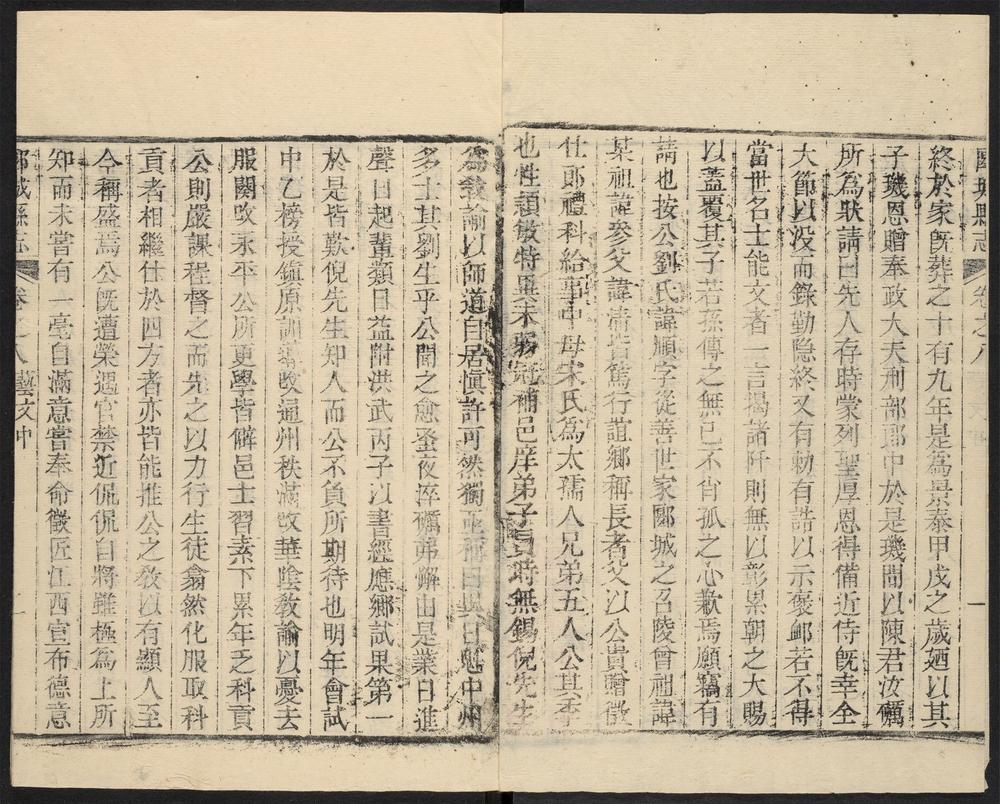 郾城縣志
卷之八
一
終於家既葬之十有九年是為景泰甲戌之歲廼以其
子璣恩贈奉政大夫刑部郎中於是璣間以陳君汝礪
所為狀請曰先人存時蒙列聖厚恩得備近侍既幸全
大節以没而錄勤隐終又有勅有誥以示褒䘏若不得
當世名士能文者一言揭諸阡則無以彰累朝之大賜
以蓋覆其子若孫傳之無已不肖孤之心歉焉願竊有
請也按公劉氏諱順字從善世家郾城之召陵曾祖諱
某祖諱參父諱清皆篤行誼鄉稱長者父以公貴贈徵
仕郎禮科給事中母宋氏為太孺人兄弟五人公其季
也性頴敏特異未弱冠補邑庠弟子員時無錫倪先生
為教諭以師道自居慎許可然獨亟稱曰異日魁中州
多士其劉生乎公聞之愈蚤夜淬礪弗懈由是業日進
聲日起輩類日益附洪武丙子以書經應鄉試果第一
於是皆歎倪先生知人而公不負所期待也明年會試
中乙榜授鎮原訓導改通州秩滿改華陰教諭以憂去
服闋改永平公所更學皆僻邑士習素下累年乏科貢
公則嚴課程督之而先之以力行生徒翕然化服取科
貢者相繼仕於四方者亦皆能推公之教以有顯人至
今稱盛焉公既遭榮遇官禁近侃侃自將雖極為上所
知而未嘗有一毫自滿意嘗奉命徵匠江西宣布德意
郾城縣志
卷之八
藝文中
一